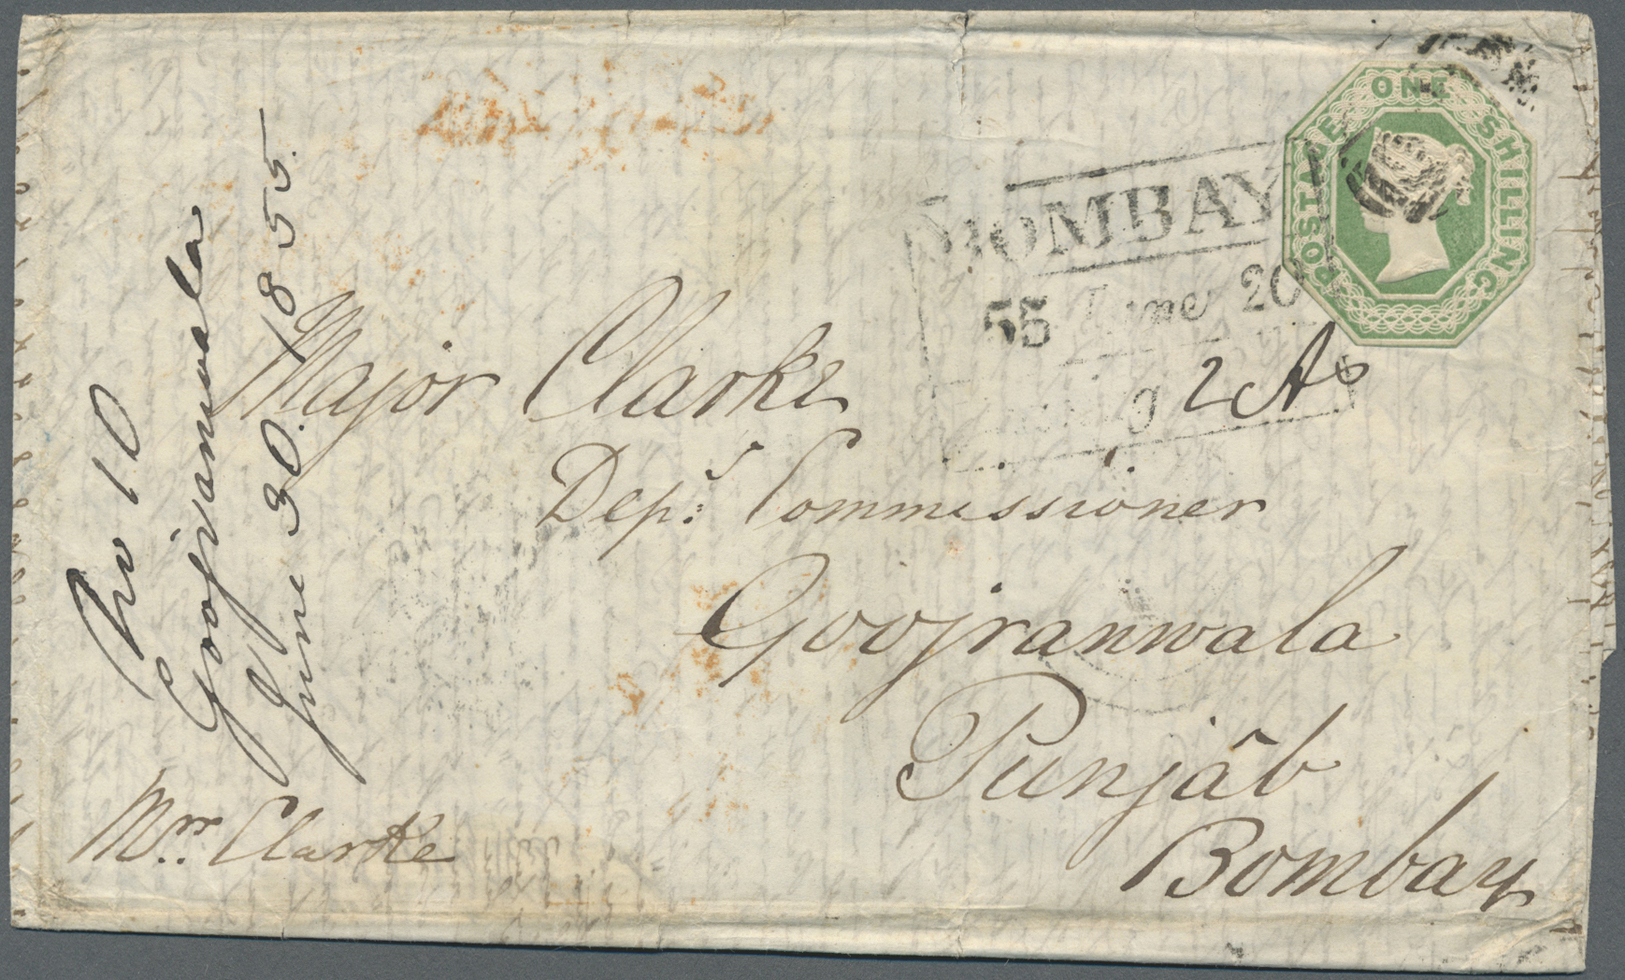 POSTAGE ONE SHILLING
BOMBAY
55 June 20
2 As
Major Clarke
Depy. Commissioner
Goojranwala
Punjâb
Bombay
No 10
Goojranwala
June 30. 1855.
Mrs. Clarke